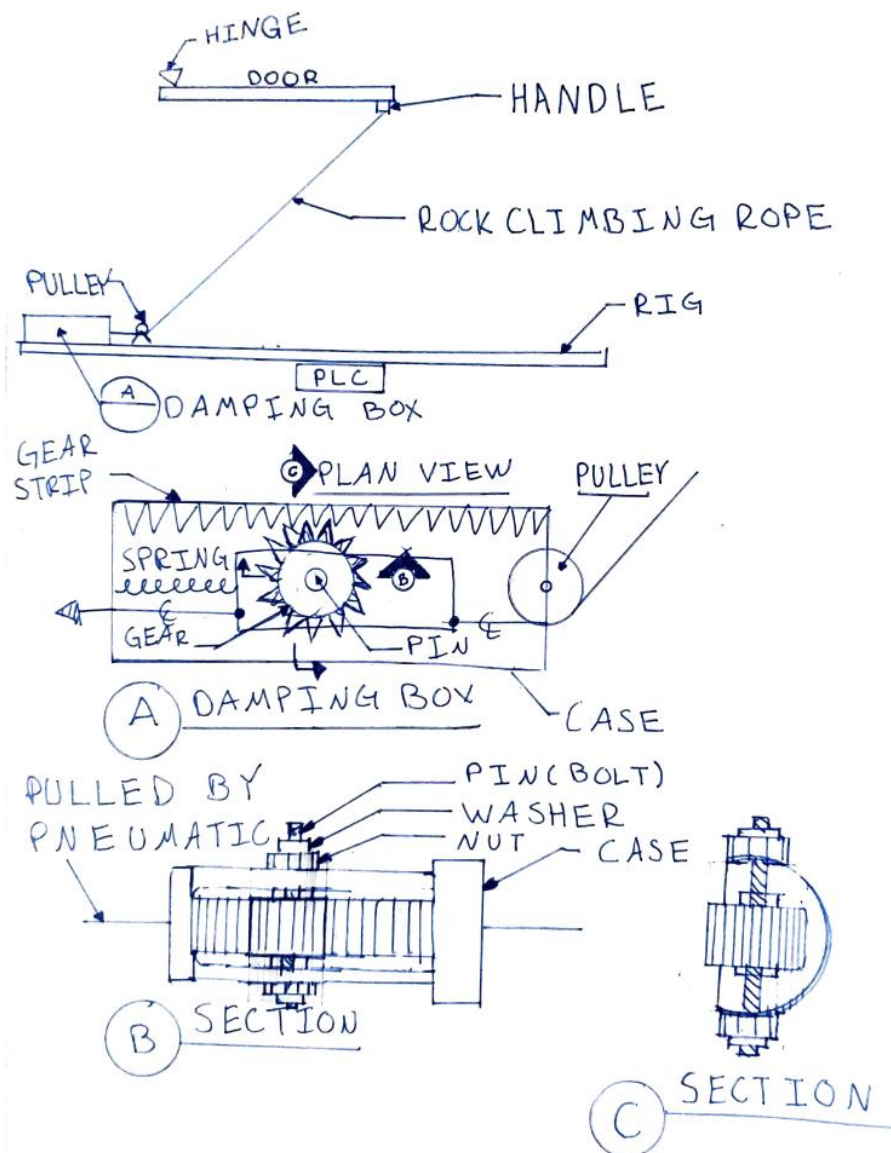 HINGE
DOOR
HANDLE
ROCK CLIMBING ROPE
PULLEY
RIG
PLC
A
DAMPING BOX
GEAR
STRIP
C
PLAN VIEW
PULLEY
SPRING
B
℄
℄
GEAR
PIN
A
DAMPING BOX
CASE
PULLED BY
PNEUMATIC
PIN(BOLT)
WASHER
NUT
CASE
B
SECTION
C
SECTION